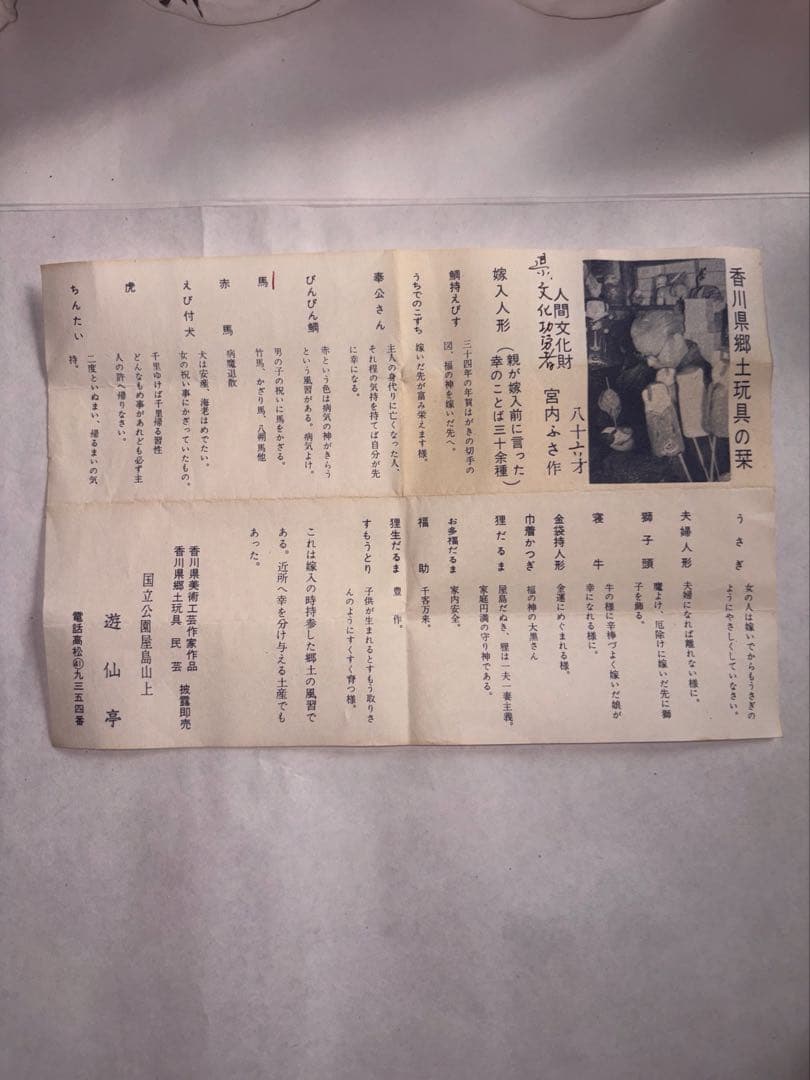 香川県郷土玩具の栞
八十六才
人間文化財 宮内ふさ作
県文化功労者
嫁入人形（親が嫁入前に言った
幸のことば三十余種）
鯛持えびす 三十四年の年賀はがきの切手の
図、福の神を嫁いだ先へ。
うちでのこずち 嫁いだ先が富み栄えます様。
奉公さん 主人の身代りに亡くなった人、
それ程の気持を持てば自分が先
に幸になる。
ぴんぴん鯛 赤という色は病気の神がきらう
という風習がある。病気よけ。
馬 男の子の祝いに馬をかざる。
竹馬、かざり馬、八朔馬他
赤馬 病魔退散
えび付犬 犬は安産、海老はめでたい。
女の祝い事にかざっていたもの。
虎 千里ゆけば千里帰る習性
どんなもめ事があれども必ず主
人の許へ帰りなさい。
ちんたい 二度といぬまい、帰るまいの気
持。
うさぎ 女の人は嫁いでからもうさぎの
ようにやさしくしていなさい。
夫婦人形 夫婦になれば離れない様に。
獅子頭 魔よけ、厄除けに嫁いだ先に獅
子を飾る。
寝牛 牛の様に辛棒づよく嫁いだ娘が
幸になれる様に。
金袋持人形 金運にめぐまれる様。
巾着かつぎ 福の神の大黒さん
狸だるま 屋島だぬき、狸は一夫一妻主義。
家庭円満の守り神である。
お多福だるま 家内安全。
福助 千客万来。
狸生だるま 豊作。
すもうとり 子供が生まれるとすもう取りさ
んのようにすくすく育つ様。
これは嫁入の時持参した郷土の風習で
ある。近所へ幸を分け与える土産でも
あった。
香川県美術工芸作家作品
香川県郷土玩具 民芸 披露即売
国立公園屋島山上
遊仙亭
電話高松㊶九三五四番